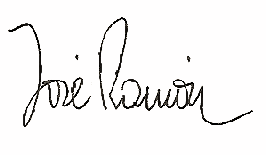 José Ramón